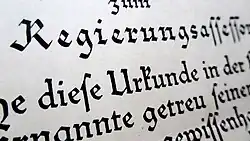 zum
Regierungsaſſeſſor
dieſe Urkunde in der
ernannte getreu ſeiner
gewiſſenh